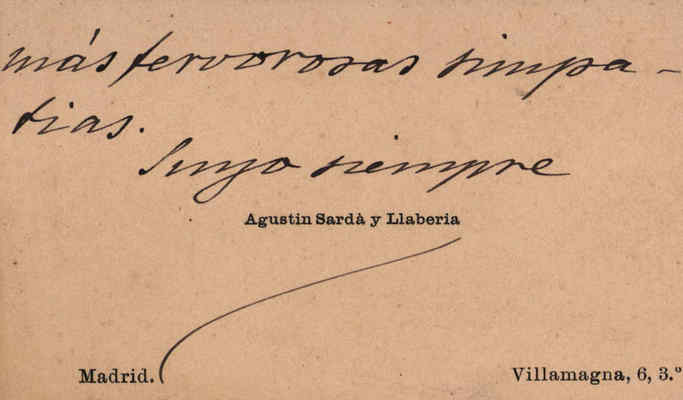 más fervorosas simpa-
tias.
Suyo siempre
Agustin Sardà y Llaberia
Madrid.
Villamagna, 6, 3.º